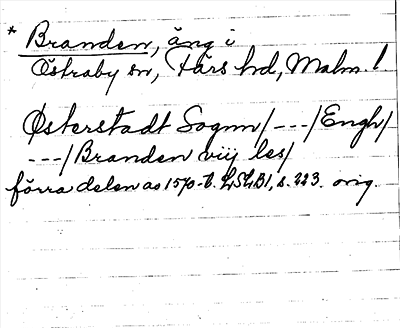 * Branden, äng i
Östraby sn, Färs hd, Malm. l.
Østerstadt Sognn/ --- /Engh/
--- /Branden viij les/
förra delen av 1570-t. LSLB1, s. 223. orig.